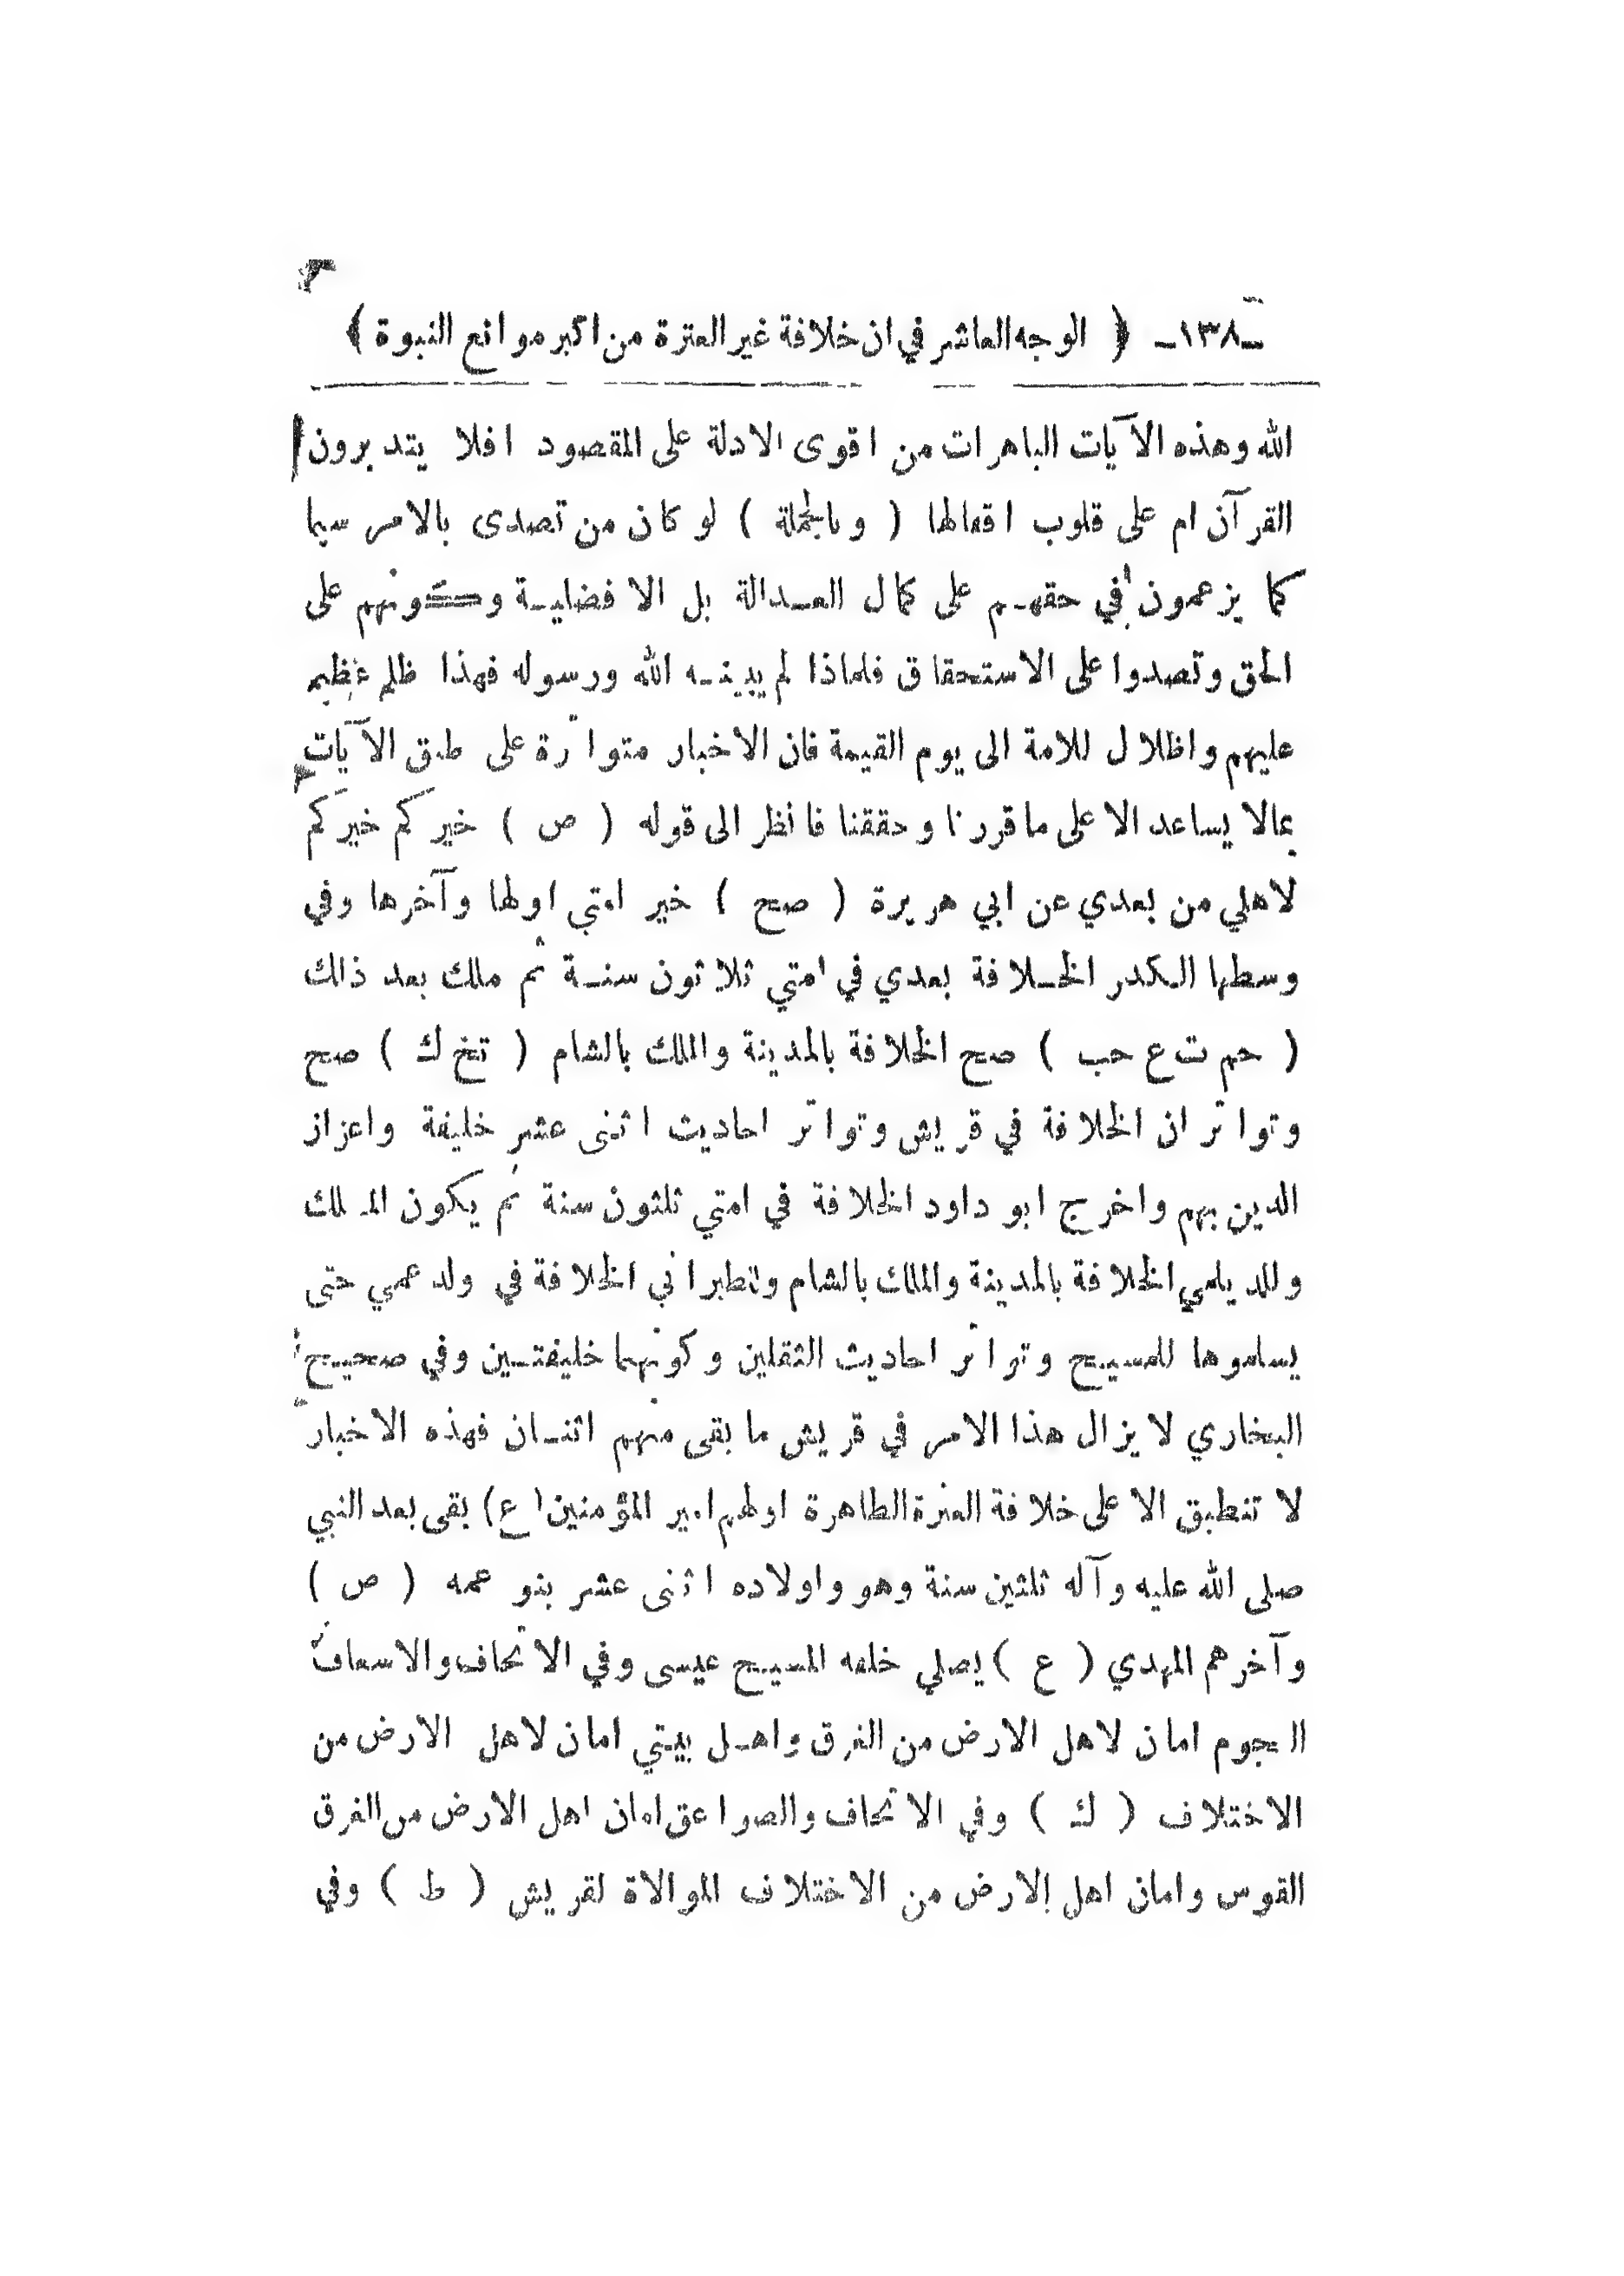 -١٣٨- ﴿ الوجه العاشر في ان خلافة غير العترة من اكبر موانع النبوة ﴾
الله وهذه الآيات الباهرات من اقوى الادلة على المقصود افلا يتدبرون
القرآن ام على قلوب اقفالها ( وبالجملة ) لو كان من تصدى بالامر سيما
كما يزعمون في حقهم على كمال العدالة بل الافضلية وكونهم على
الحق وتصدوا على الاستحقاق فلماذا لم يبينه الله ورسوله فهذا ظلم عظيم
عليهم واظلال للامة الى يوم القيمة فان الاخبار متواترة على طبق الآيات
بمالا يساعد الا على ما قررنا وحققنا فانظر الى قوله ( ص ) خيركم خيركم
لاهلي من بعدي عن ابي هريرة ( صح ) خير امتي اولها وآخرها وفي
وسطها الكدر الخلافة بعدي في امتي ثلاثون سنة ثم ملك بعد ذلك
( حم ت ع حب ) صح الخلافة بالمدينة والملك بالشام ( تخ ك ) صح
وتواتر ان الخلافة في قريش وتواتر احاديث اثنى عشر خليفة واعزاز
الدين بهم واخرج ابو داود الخلافة في امتي ثلثون سنة ثم يكون الملك
وللديلمي الخلافة بالمدينة والملك بالشام وللطبراني الخلافة في ولد عمي حتى
يسلموها للمسيح وتواتر احاديث الثقلين وكونهما خليفتين وفي صحيح
البخاري لا يزال هذا الامر في قريش ما بقى منهم اثنان فهذه الاخبار
لا تنطبق الا على خلافة العترة الطاهرة اولهم امير المؤمنين (ع) بقى بعد النبي
صلى الله عليه وآله ثلثين سنة وهو واولاده اثنى عشر بنو عمه ( ص )
وآخرهم المهدي ( ع ) يصلي خلفه المسيح عيسى وفي الاتحاف والاسعاف
النجوم امان لاهل الارض من الغرق واهل بيتي امان لاهل الارض من
الاختلاف ( ك ) وفي الاتحاف والصواعق امان اهل الارض من الغرق
القوس وامان اهل الارض من الاختلاف الموالاة لقريش ( ط ) وفي